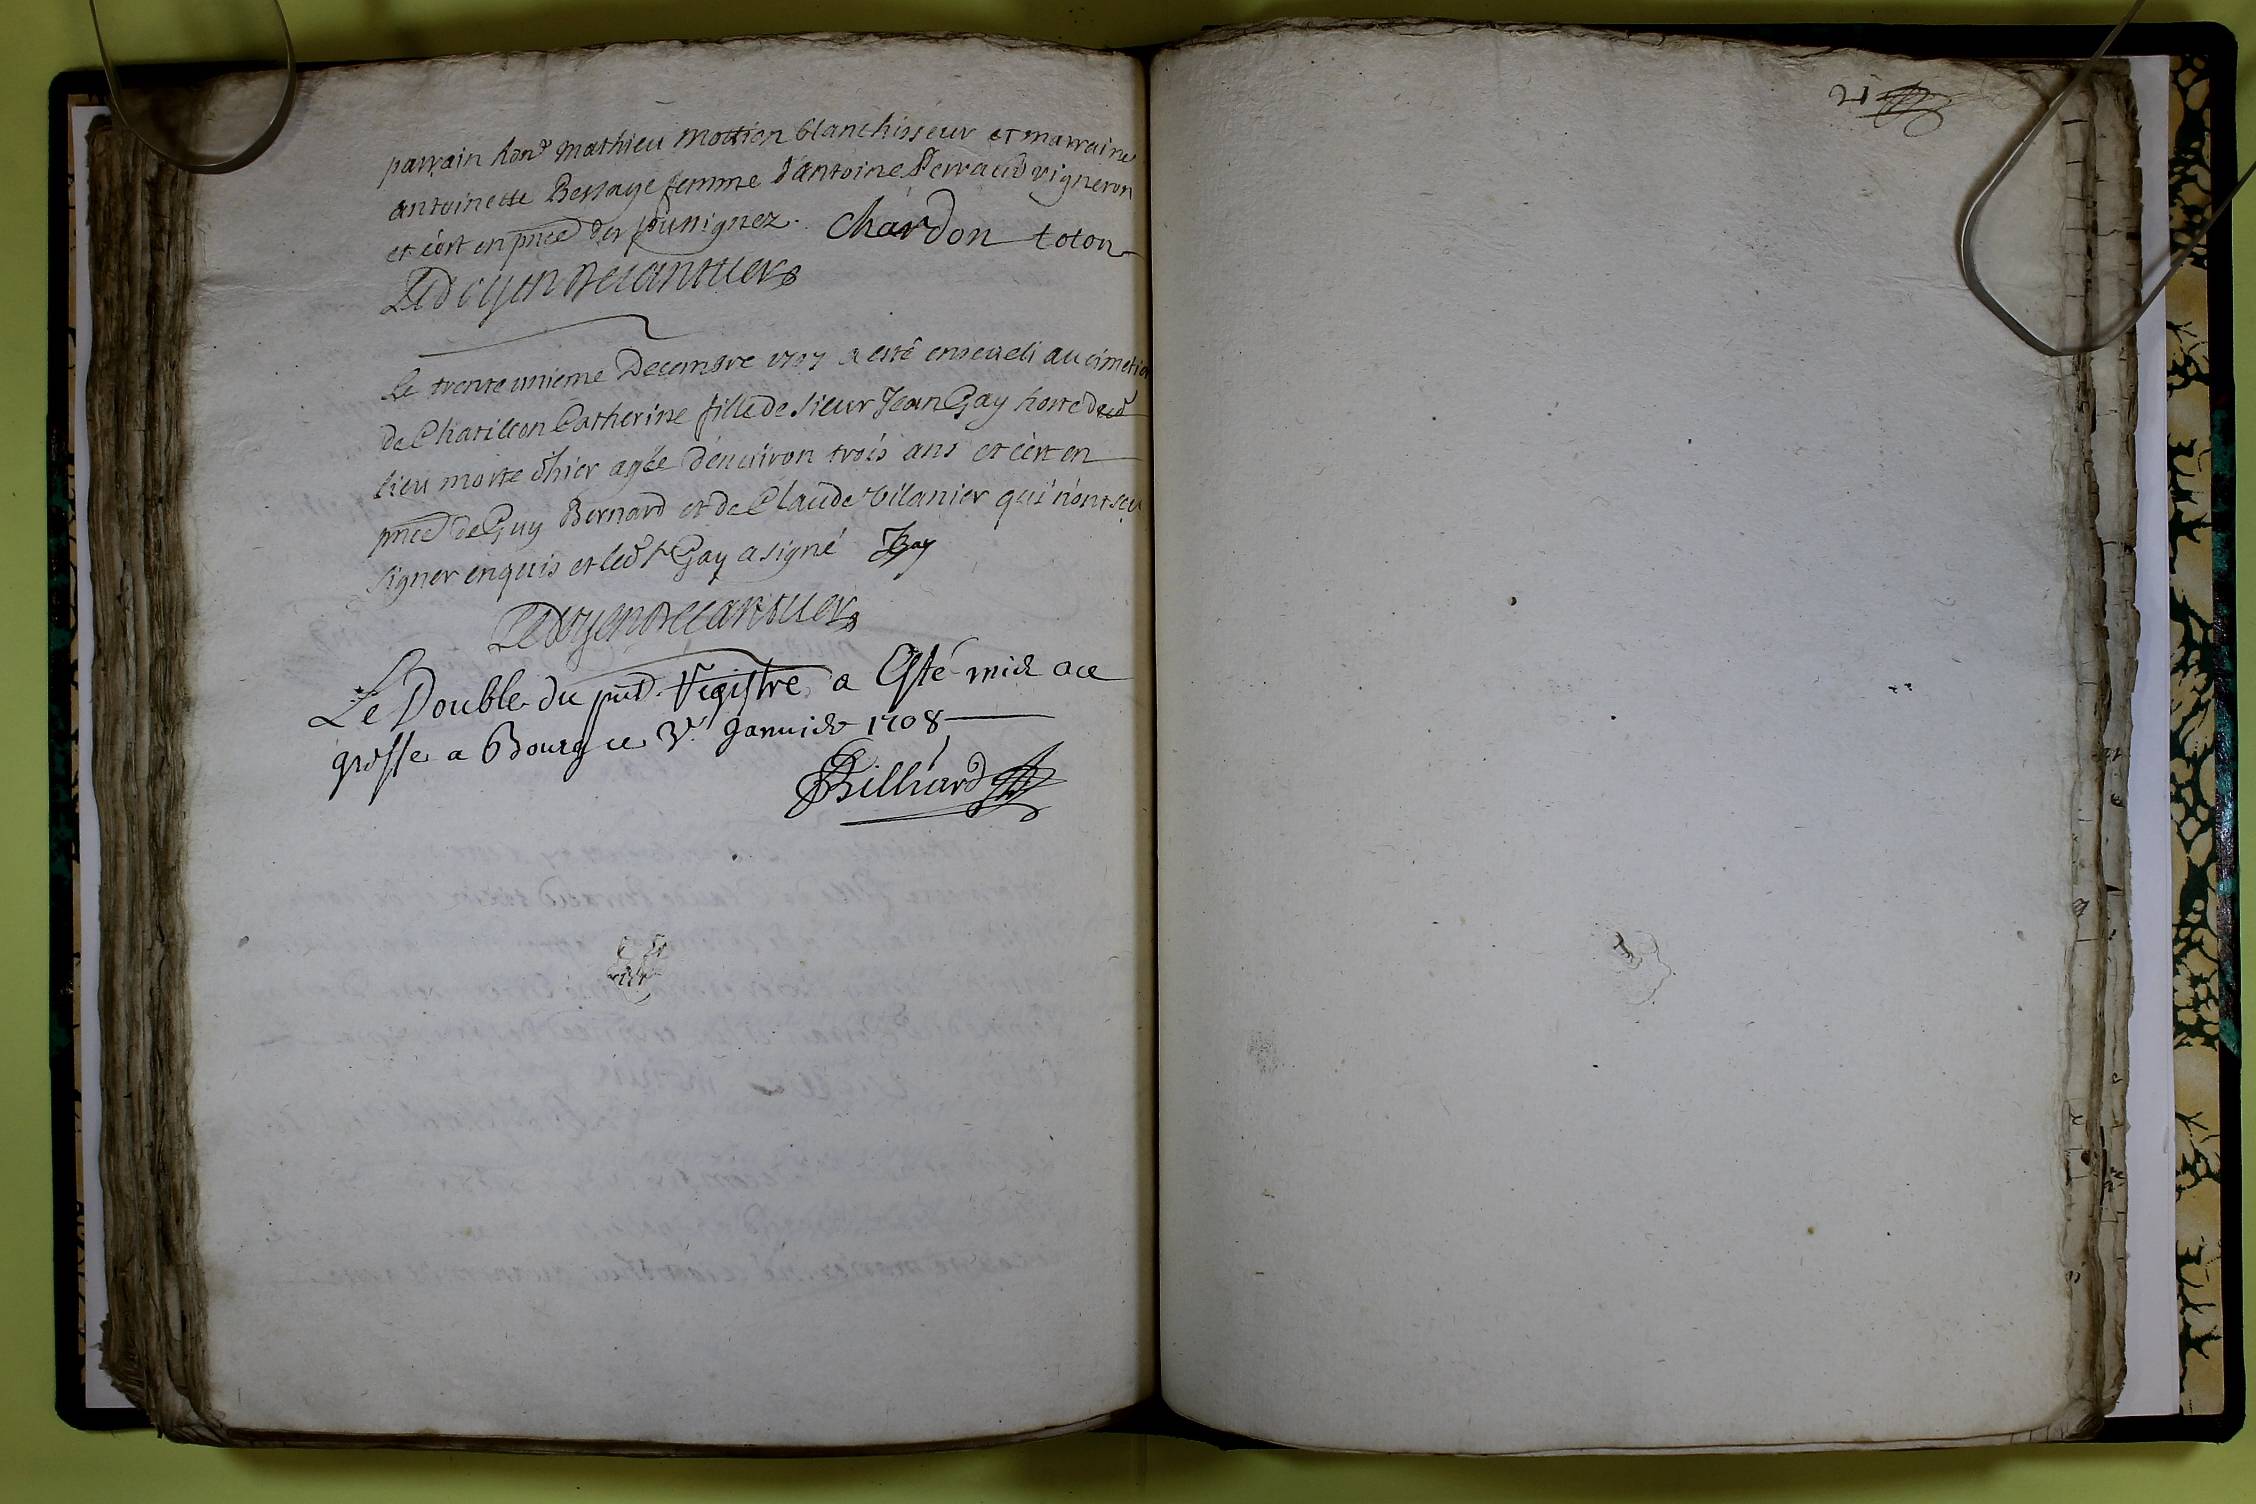 parrain hon^e mathieu mottion blanchisseur et marraine
antoinette Bessaye femme d'antoine Perraud vigneron
et c'est en p̄nce des soussignez. Chardon toton
Ledoyen
Le trente unieme Decembre 1707 a esté enseveli au cimetie
de Chatillon Catherine fille de sieur Jean Gay hoste dud
lieu morte d'hier agée d'environ trois ans et c'est en
p̄nce de Guy Bernard et de Claude Vilanier qui n'ont sçu
signer enquis et led s^r Gay a signé JGay
Ledoyen
Le Double du pn̄t Registre a Esté mis a ce
grosse a Bourg ce 3^e Janvier 1708
Billiard
21